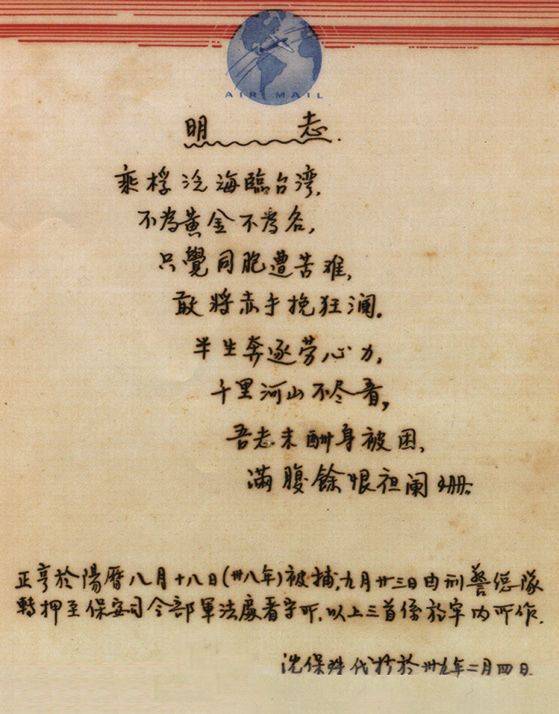 AIR MAIL
明 志.
乘桴泛海臨台湾,
不為黃金不為名,
只覺同胞遭苦难,
敢將赤手挽狂澜.
半生奔逐劳心力,
千里河山不尽看,
吾志未酬身被困,
满腹餘恨袒阑珊.
正亨於陽曆八月十八日(卅八年)被捕,九月廿三日由刑警總隊
轉押至保安司令部軍法處看守所,以上三首係於牢內所作.
沈保珠代抄於卅九年二月四日.